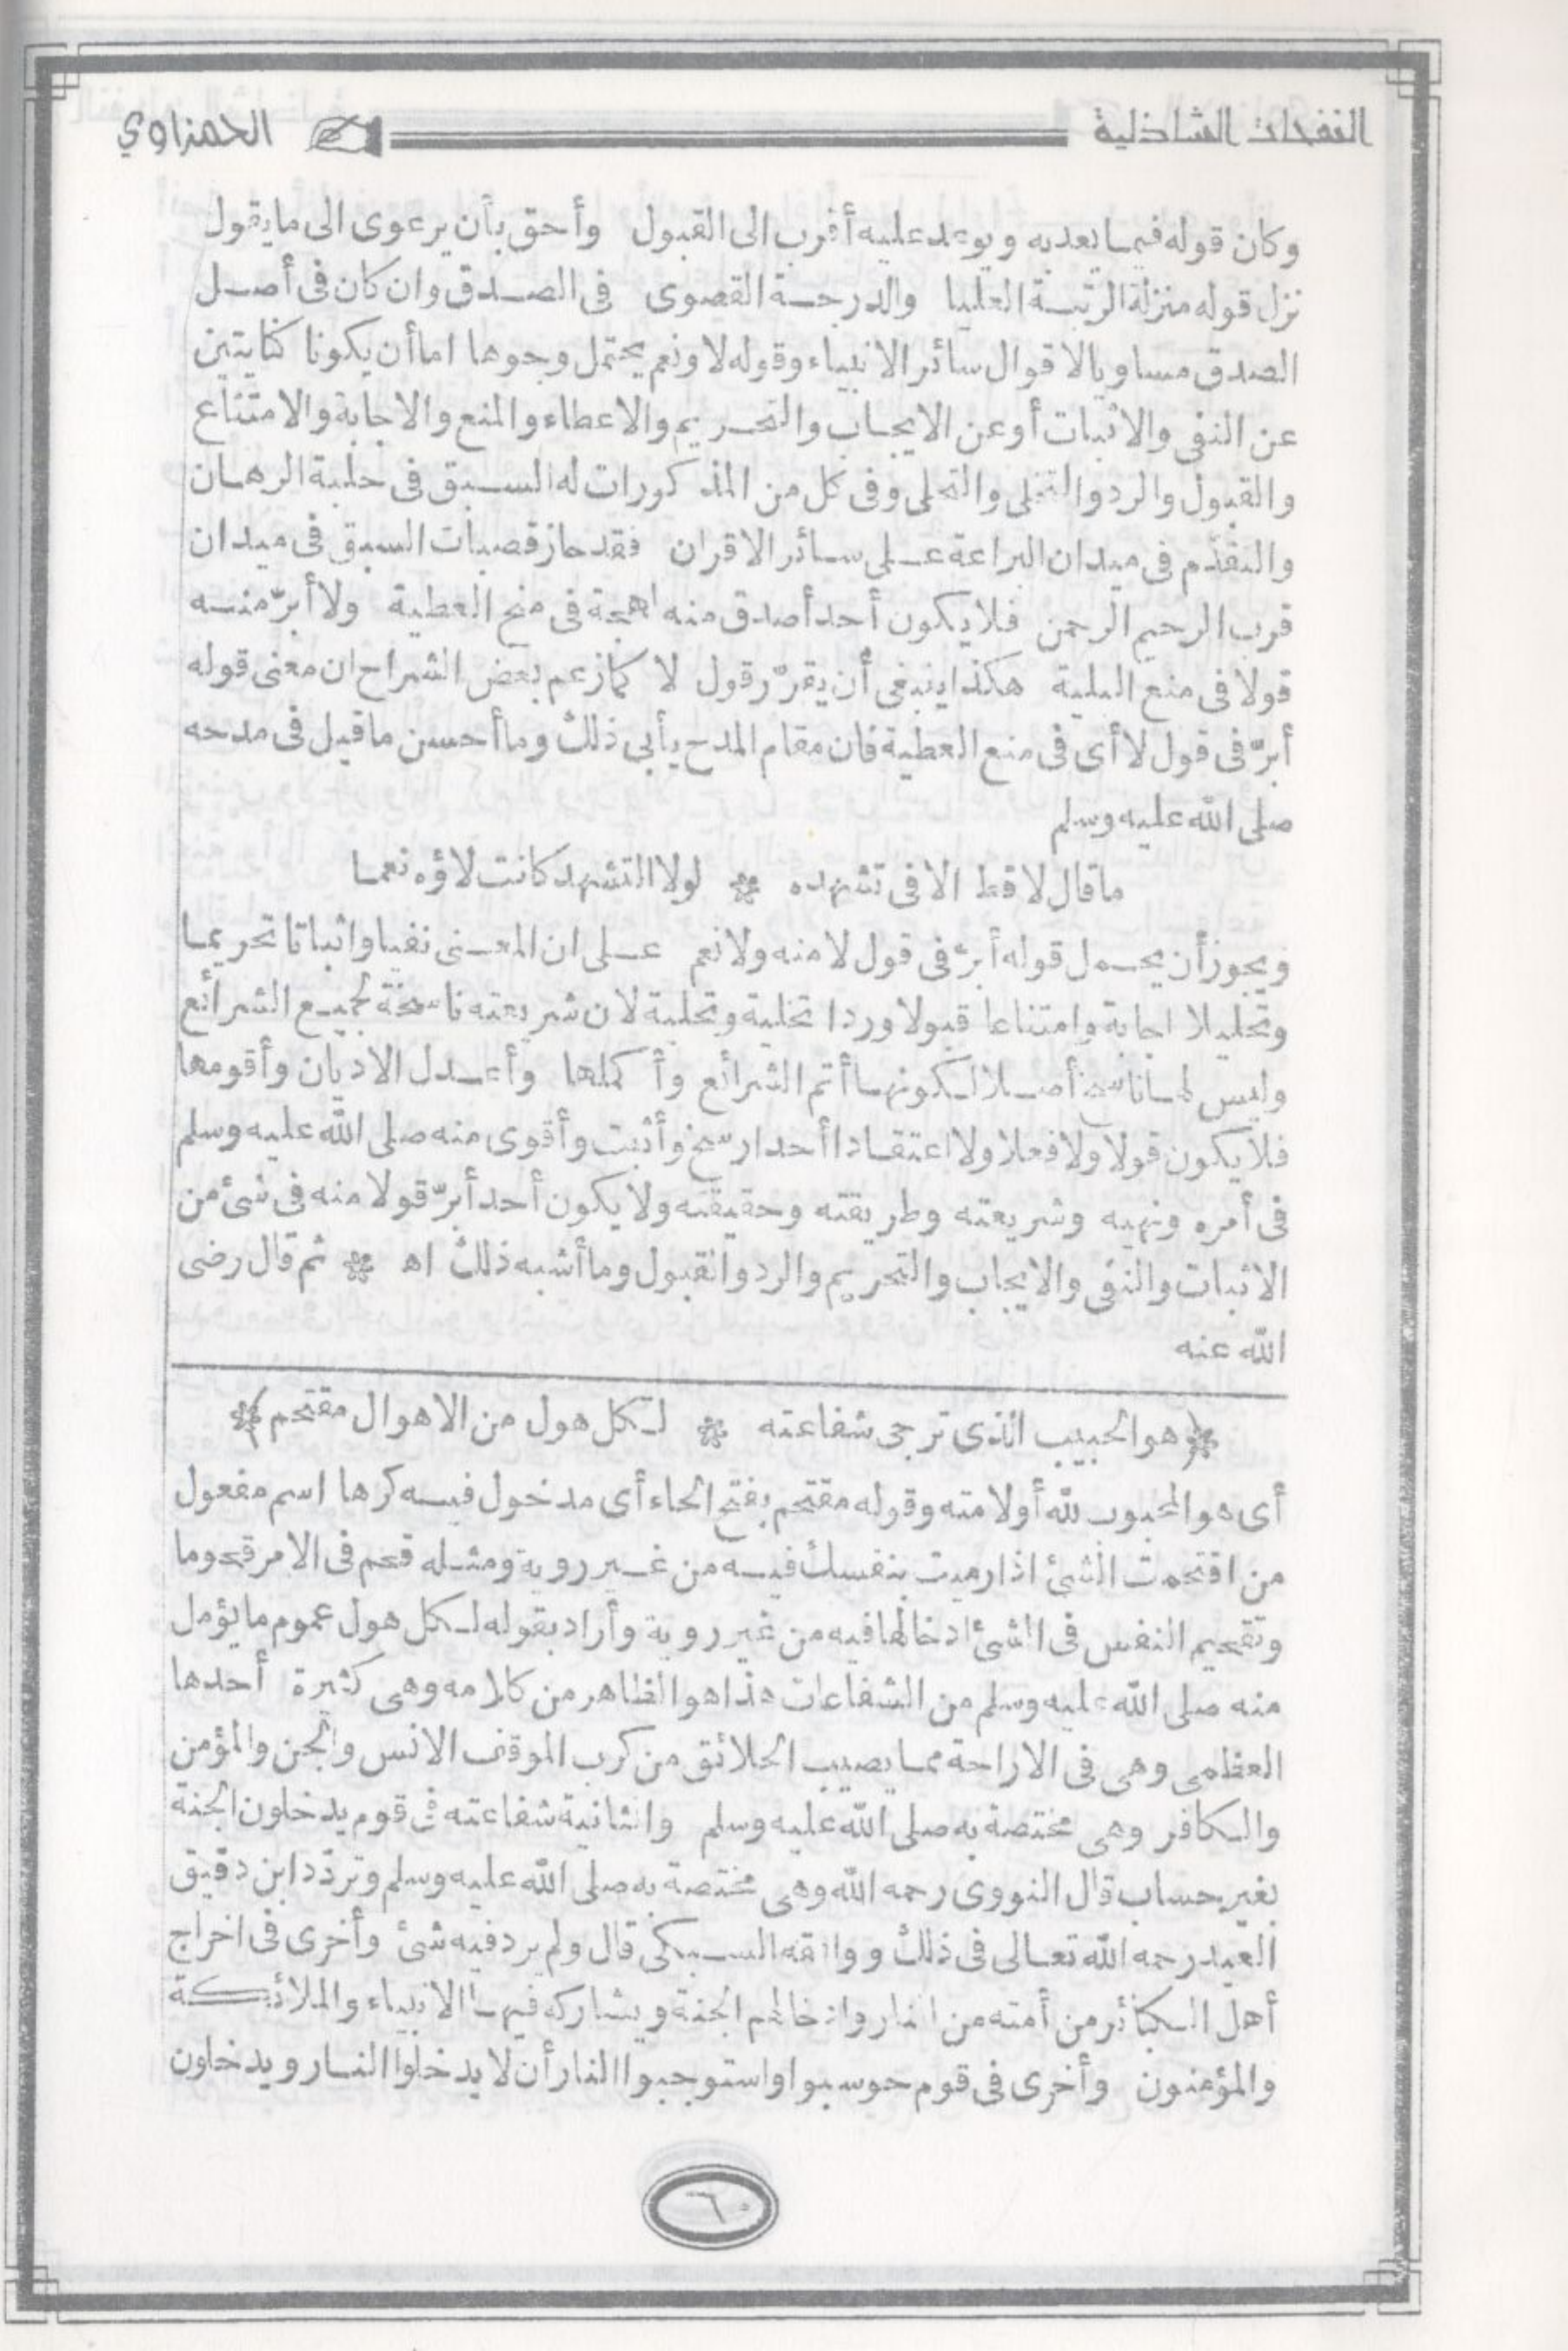 النفحات الشاذلية الحمزاوي
وكان قوله فيما يعد به ويوعد عليه أقرب الى القبول وأحق بأن يرعوى الى ما يقول
نزل قوله منزلة الرتبة العليا والدرجة القصوى فى الصدق وان كان فى أصل
الصدق مساويا لاقوال سائر الانبياء وقوله لا ونعم يحتمل وجوها اما أن يكونا كنايتين
عن النفى والاثبات أو عن الايجاب والتحريم والاعطاء والمنع والاجابة والامتناع
والقبول والرد والتخلى والتحلى وفى كل من المذكورات له السبق فى حلبة الرهان
والتقدّم فى ميدان البراعة على سائر الاقران فقد حاز قصبات السبق فى ميدان
قرب الرحيم الرحمن فلا يكون أحد أصدق منه لهجة فى منح العطية ولا أبرّ منه
قولا فى منع البلية هكذا ينبغى أن يقرّر قول لا كما زعم بعض الشراح ان معنى قوله
أبرّ فى قول لا أى فى منع العطية فان مقام المدح يأبى ذلك وما أحسن ما قيل فى مدحه
صلى الله عليه وسلم
ما قال لا قط الا فى تشهده * لولا التشهد كانت لاؤه نعما
ويجوز أن يحمل قوله أبرّ فى قول لا منه ولا نعم على ان المعنى نفيا واثباتا تحريما
وتحليلا اجابة وامتناعا قبولا وردا تخلية وتحلية لان شريعته ناسخة لجميع الشرائع
وليس لها ناسخ أصلا لكونها أتم الشرائع وأكملها وأعدل الاديان وأقومها
فلا يكون قولا ولا فعلا ولا اعتقادا أحد ارسخ وأثبت وأقوى منه صلى الله عليه وسلم
فى أمره ونهيه وشريعته وطريقته وحقيقته ولا يكون أحد أبرّ قولا منه فى شئ من
الاثبات والنفى والايجاب والتحريم والرد والقبول وما أشبه ذلك اه * ثم قال رضى
الله عنه
﴿هو الحبيب الذى ترجى شفاعته * لكل هول من الاهوال مقتحم﴾
أى هو المحبوب لله أولامته وقوله مقتحم بفتح الحاء أى مدخول فيه كرها اسم مفعول
من اقتحمت الشئ اذا رميت بنفسك فيه من غير روية ومثله قحم فى الامر قحوما
وتقحيم النفس فى الشئ ادخالها فيه من غير روية وأراد بقوله لكل هول عموم ما يؤمل
منه صلى الله عليه وسلم من الشفاعات هذا هو الظاهر من كلامه وهى كثيرة أحدها
العظمى وهى فى الاراحة مما يصيب الخلائق من كرب الموقف الانس والجن والمؤمن
والكافر وهى مختصة به صلى الله عليه وسلم والثانية شفاعته فى قوم يدخلون الجنة
بغير حساب قال النووى رحمه الله وهى مختصة به صلى الله عليه وسلم وتردّد ابن دقيق
العيد رحمه الله تعالى فى ذلك ووافقه السبكى قال ولم يرد فيه شئ وأخرى فى اخراج
أهل الكبائر من أمته من النار وادخالهم الجنة ويشاركه فيها الانبياء والملائكة
والمؤمنون وأخرى فى قوم حوسبوا واستوجبوا النار أن لا يدخلوا النار ويدخلون
٦٠